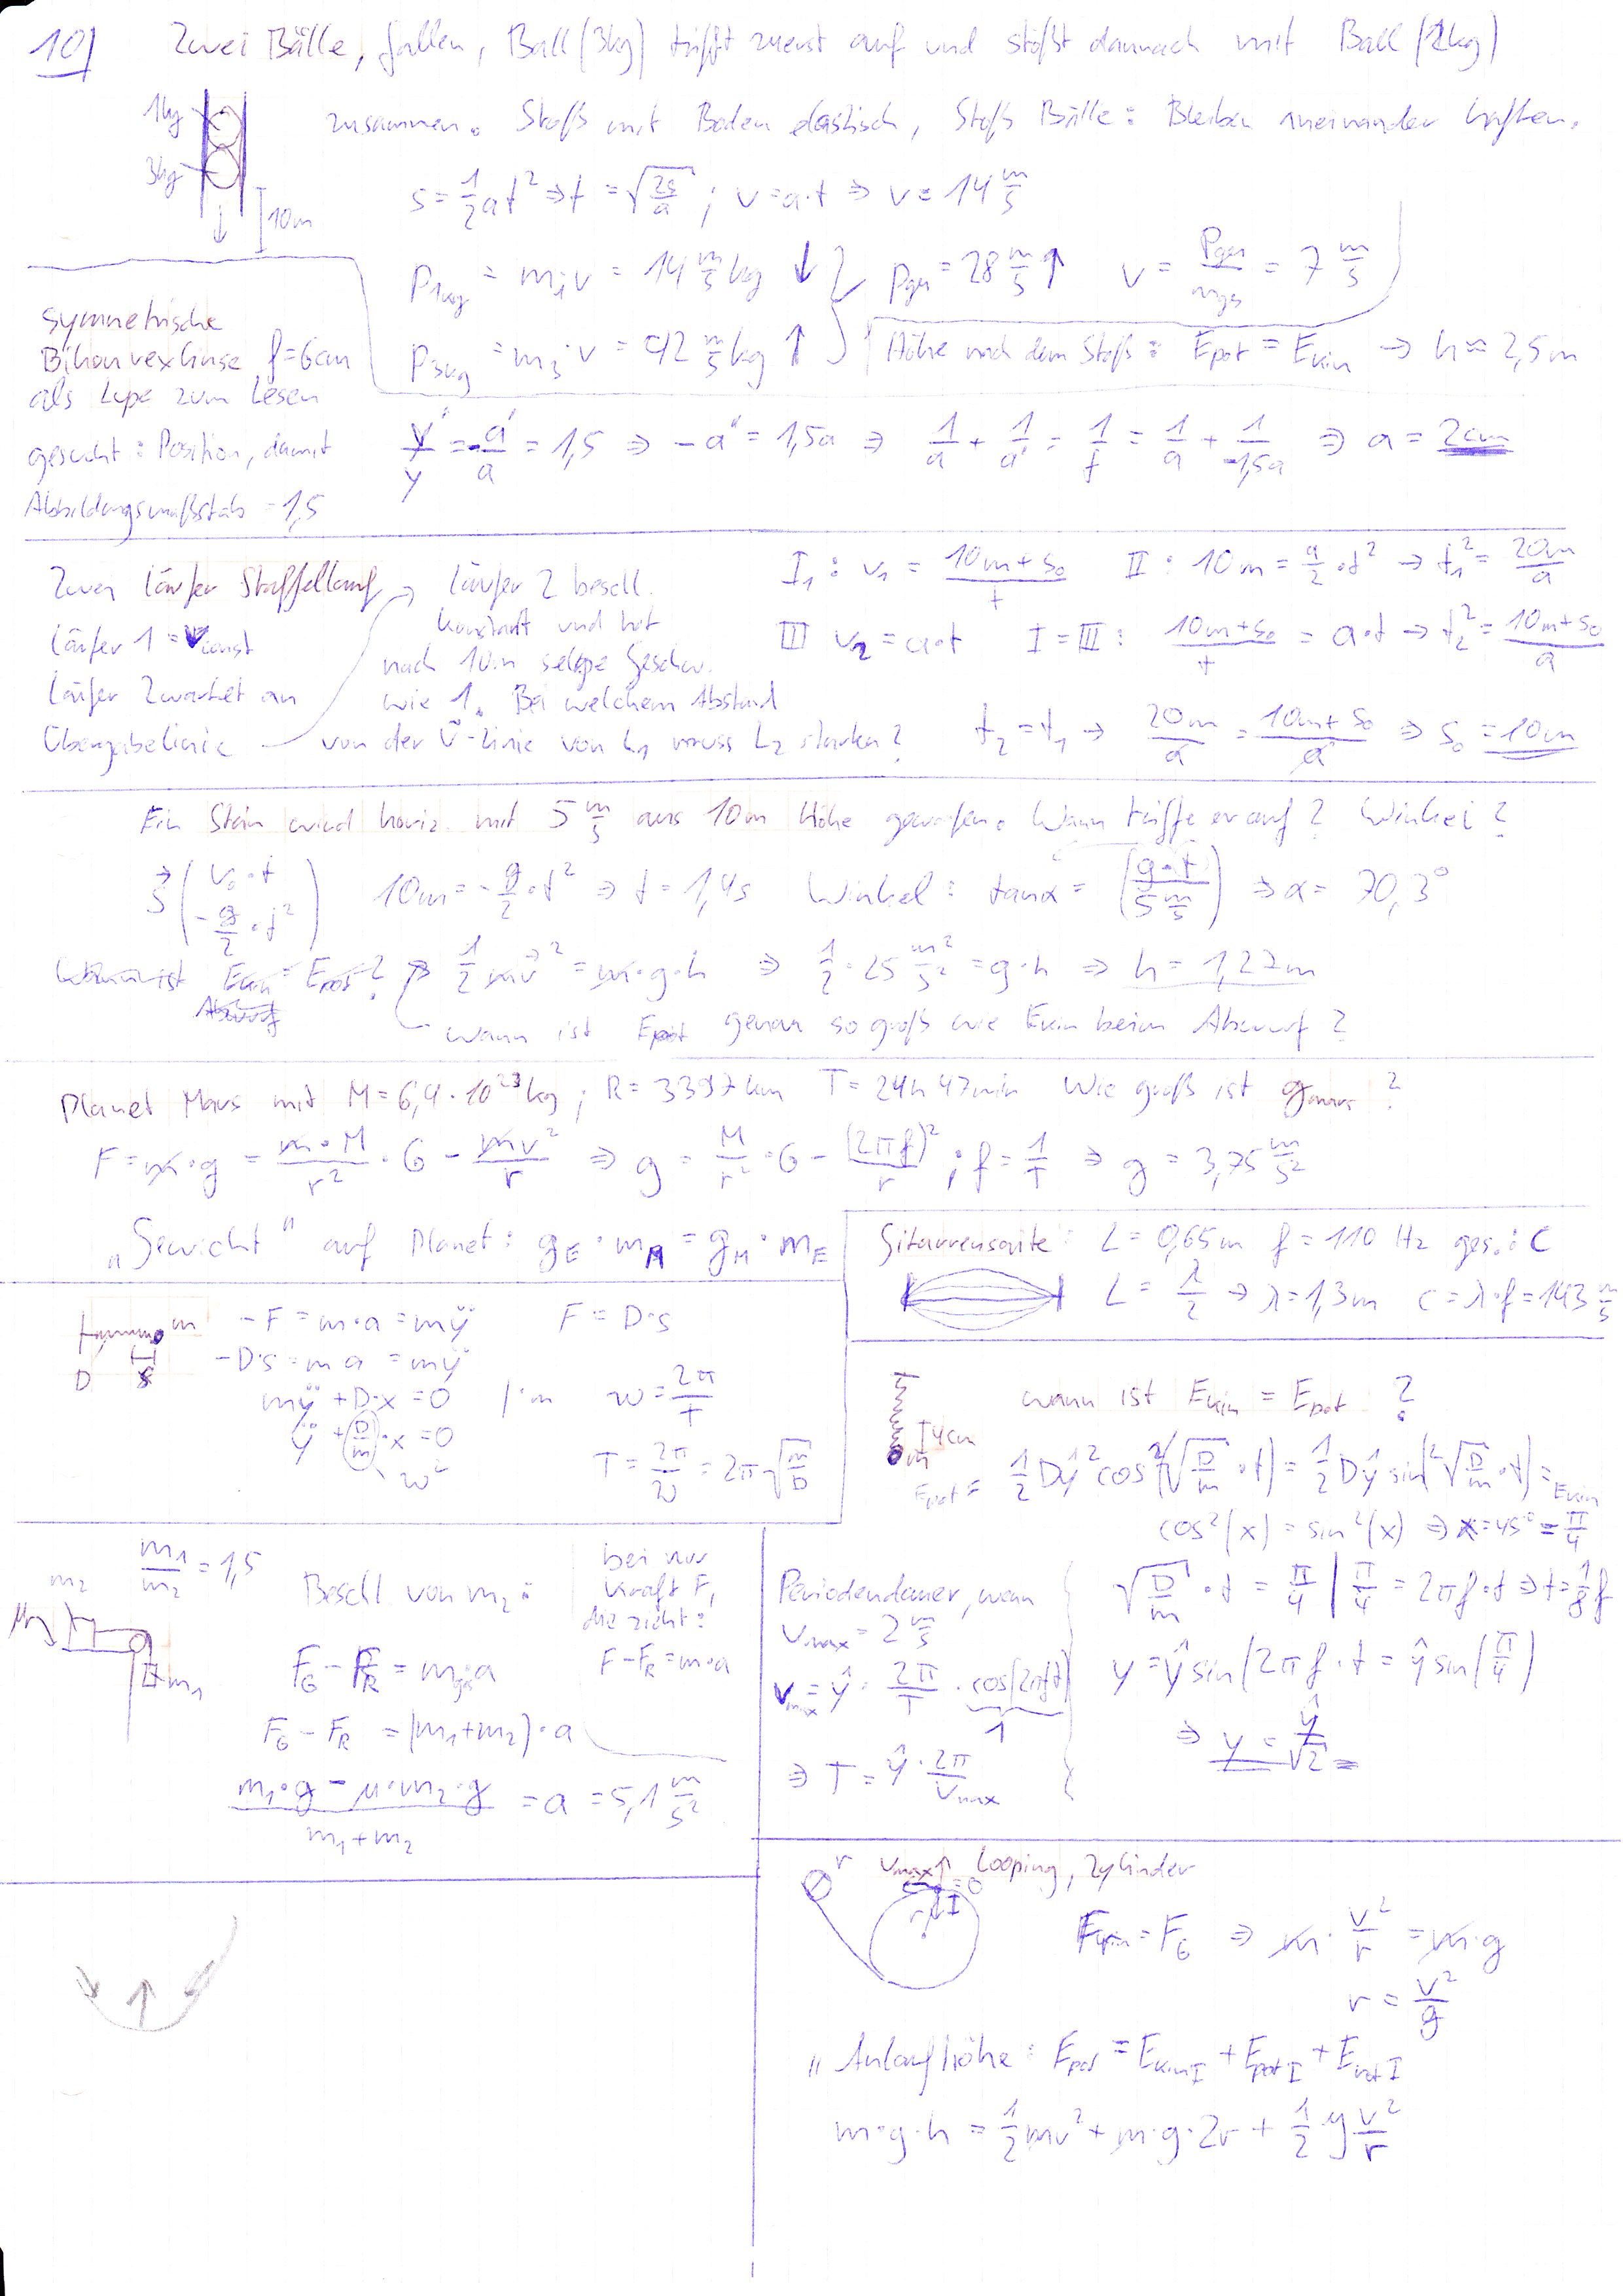 10)
Zwei Bälle, fallen, Ball (3kg) trifft zuerst auf und stößt dannach mit Ball (1kg)
zusammen. Stoß mit Boden elastisch, Stoß Bälle: Bleiben aneinander haften.
1kg
3kg
10m
s = 1/2 at² ⇒ t = √(2s/a) ; v = a·t ⇒ v = 14 m/s
p1kg = m1·v = 14 m/s kg ↓ } pges = 28 m/s ↑ v = pges/mges = 7 m/s
p3kg = m3·v = 42 m/s kg ↑
Höhe nach dem Stoß: Epot = Ekin → h ≈ 2,5m
symmetrische
Bikonvexlinse f=6cm
als Lupe zum Lesen
gesucht: Position, damit
Abbildungsmaßstab = 1,5
y'/y = -a'/a = 1,5 ⇒ -a' = 1,5a ⇒ 1/a + 1/a' = 1/f = 1/a + 1/-1,5a ⇒ a = 2cm
Zwei Läufer Staffellauf
Läufer 1 = vconst
Läufer 2 wartet an
Übergabelinie
Läufer 2 beschl.
konstant und hat
nach 10m selbe Geschw.
wie 1. Bei welchem Abstand
von der Ü-Linie von L1 muss L2 starten?
I1: v1 = (10m+s0)/t II: 10m = a/2·t² → t1² = 20m/a
III v2 = a·t I = III: (10m+s0)/t = a·t → t2² = (10m+s0)/a
t2 = t1 → 20m/a = (10m+s0)/a ⇒ s0 = 10m
Ein Stein wird horiz. mit 5 m/s aus 10m Höhe geworfen. Wann trifft er auf? Winkel?
s⃗ (v0·t, -g/2·t²) 10m = -g/2·t² ⇒ t = 1,4s Winkel: tanα = (g·t / 5 m/s) ⇒ α = 70,3°
Wann ist Ekin = Epot? 1/2 mv⃗² = m·g·h ⇒ 1/2·25 m²/s² = g·h ⇒ h = 1,27m
Abwurf
wann ist Epot genau so groß wie Ekin beim Abwurf?
Planet Mars mit M = 6,4·10²³kg ; R = 3397km T = 24h 47min Wie groß ist gmars ?
F = m·g = m·M/r² · G - mv²/r ⇒ g = M/r² · G - (2πf)²/r ; f = 1/T ⇒ g = 3,75 m/s²
„Gewicht" auf Planet: gE·mM = gM·mE
Gitarrensaite: L = 0,65m f = 110 Hz ges.: c
L = λ/2 → λ = 1,3m c = λ·f = 143 m/s
m
D s
-F = m·a = mÿ F = D·s
-D·s = m a = mÿ
mÿ + D·x = 0 |:m ω = 2π/T
ÿ + D/m·x = 0
ω²
T = 2π/ω = 2π√(m/D)
4cm
m
wann ist Ekin = Epot ?
Epot = 1/2 Dŷ² cos²(√(D/m)·t) = 1/2 Dŷ sin²(√(D/m)·t) = Ekin
cos²(x) = sin²(x) ⇒ x = 45° = π/4
√(D/m)·t = π/4 | π/4 = 2πf·t ⇒ t = 1/8 f
y = ŷ sin(2πf·t = ŷ sin(π/4)
⇒ y = ŷ/√2 =
Periodendauer, wenn
vmax = 2 m/s
vmax = ŷ · 2π/T · cos(2πft)
1
⇒ T = ŷ · 2π/vmax
m1/m2 = 1,5
m2
μ
m1
Beschl. von m2:
FG - FR = mges·a
FG - FR = (m1+m2)·a
(m1·g - μ·m2·g)/(m1+m2) = a = 5,1 m/s²
bei nur
Kraft F,
die zieht:
F - FR = m·a
r vmax Looping, Zylinder
= 0
I
r
= FG ⇒ m·v²/r = m·g
r = v²/g
„ Anlaufhöhe: Epot = EkinI + EpotI + ErotI
m·g·h = 1/2 mv² + m·g·2r + 1/2 J v²/r